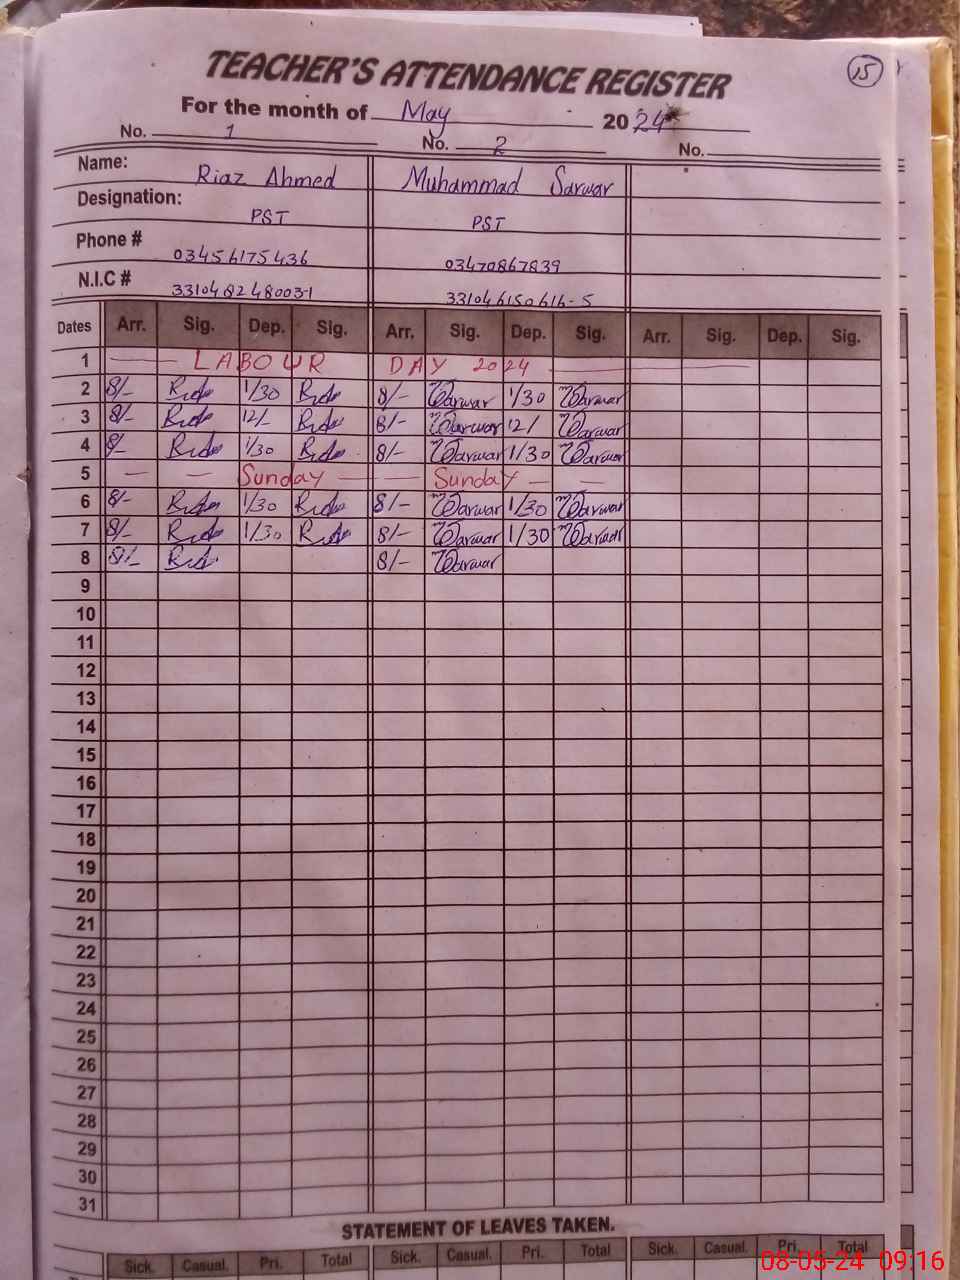 15
TEACHER'S ATTENDANCE REGISTER
For the month of May 2024
No. 1 No. 2 No.
Name: Riaz Ahmed Muhammad Sarwar
Designation: PST PST
Phone # 03456175436 03470867839
N.I.C # 3310482480031 331046150616-5
Dates Arr. Sig. Dep. Sig. Arr. Sig. Dep. Sig. Arr. Sig. Dep. Sig.
1 LABOUR DAY 2024
2 8/- 1/30 8/- Sarwar 1/30 Sarwar
3 8/- 12/- 8/- Sarwar 12/ Sarwar
4 8/- 1/30 8/- Sarwar 1/30 Sarwar
5 — — Sunday — — Sunday — —
6 8/- 1/30 8/- Sarwar 1/30 Sarwar
7 8/- 1/30 8/- Sarwar 1/30 Sarwar
8 8/- 8/- Sarwar
9
10
11
12
13
14
15
16
17
18
19
20
21
22
23
24
25
26
27
28
29
30
31
STATEMENT OF LEAVES TAKEN.
Sick. Casual. Pri. Total Sick. Casual. Pri. Total Sick. Casual. Pri. Total
08-05-24 09:16